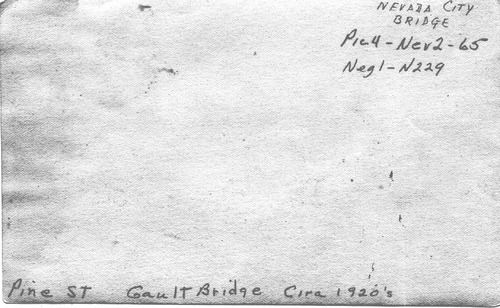 NEVADA CITY
BRIDGE
Pic4-Nev2-65
Neg1-N229
Pine ST Gault Bridge Cira 1920's